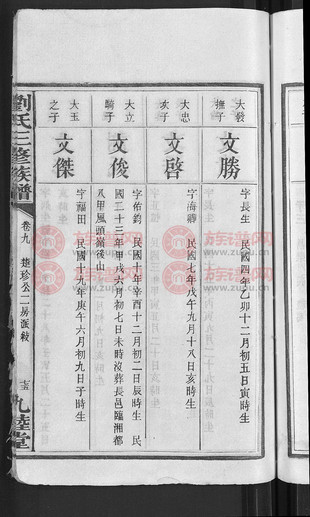 大發
撫子
文勝
字長生 民國四年乙卯十二月初五日寅時生
大忠
亥子
文啓
民國七年戊午九月十八日亥時生
大立
騎子
文俊
字佑鈞 民國十年辛酉十二月初二日辰時生 民
國二十三年甲戌六月初七日未時沒葬長邑臨湘都
八甲風頭嶺後山
大玉
之子
文傑
字福田 民國十九年庚午六月初九日子時生
劉氏三修族譜
卷九 楚珍公二房派
九睦堂
族谱网
www.zupu.cn